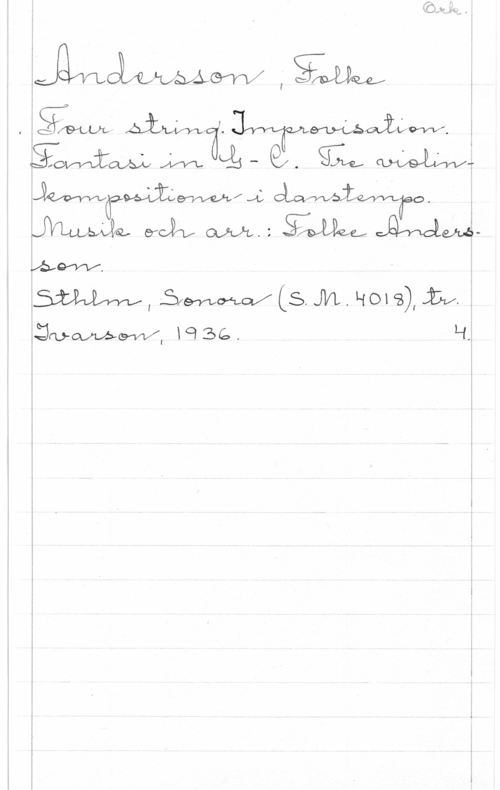 Ork.
Andersson, Folke
Four string. Improvisation.
Fantasi in G - C. Tre violin-
kompositioner i danstempo.
Musik och arr.: Folke Anders-
son.
Sthlm, Sonora (S. M. 4018), tr.
Ivarson, 1936. 4.